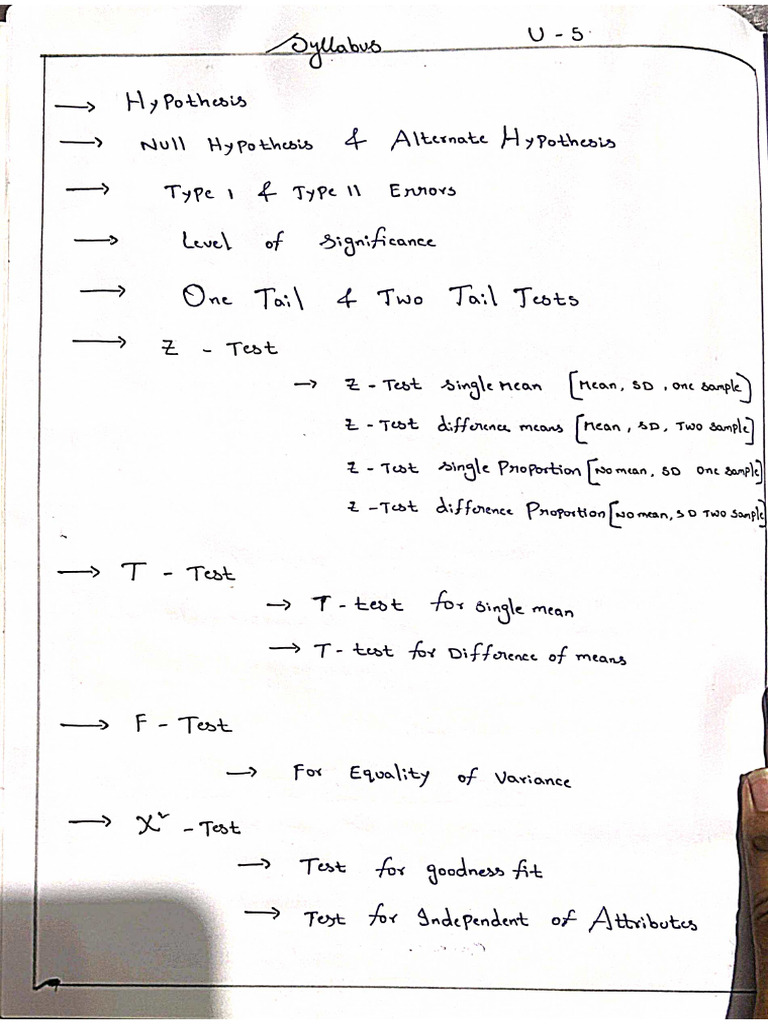 Syllabus U - 5.
→ Hypothesis
→ Null Hypothesis & Alternate Hypothesis
→ Type I & Type II Errors
→ Level of significance
→ One Tail & Two Tail Tests
→ Z - Test
→ Z - Test single Mean [Mean, SD, one sample]
Z - Test difference means [Mean, SD, Two sample]
Z - Test single Proportion [No mean, SD one sample]
Z - Test difference Proportion [No mean, SD Two sample]
→ T - Test
→ T - test for single mean
→ T - test for Difference of means
→ F - Test
→ For Equality of Variance
→ X² - Test
→ Test for goodness fit
→ Test for Independent of Attributes